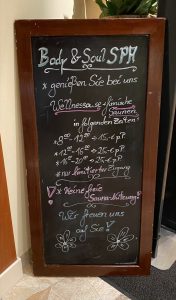 Body & Soul SPA
* genießen Sie bei uns
Wellnessoase & finnische
Saunen
in folgenden Zeiten!
* 8⁰⁰ - 12⁰⁰ 15,-€ p.P.
* 12⁰⁰ - 16⁰⁰ 25,-€ p.P.
* 16⁰⁰ - 20⁰⁰ 25,-€ p.P.
* nur limitierter Zugang
! * Keine freie
Sauna-Nutzung! !
Wir freuen uns
auf Sie!